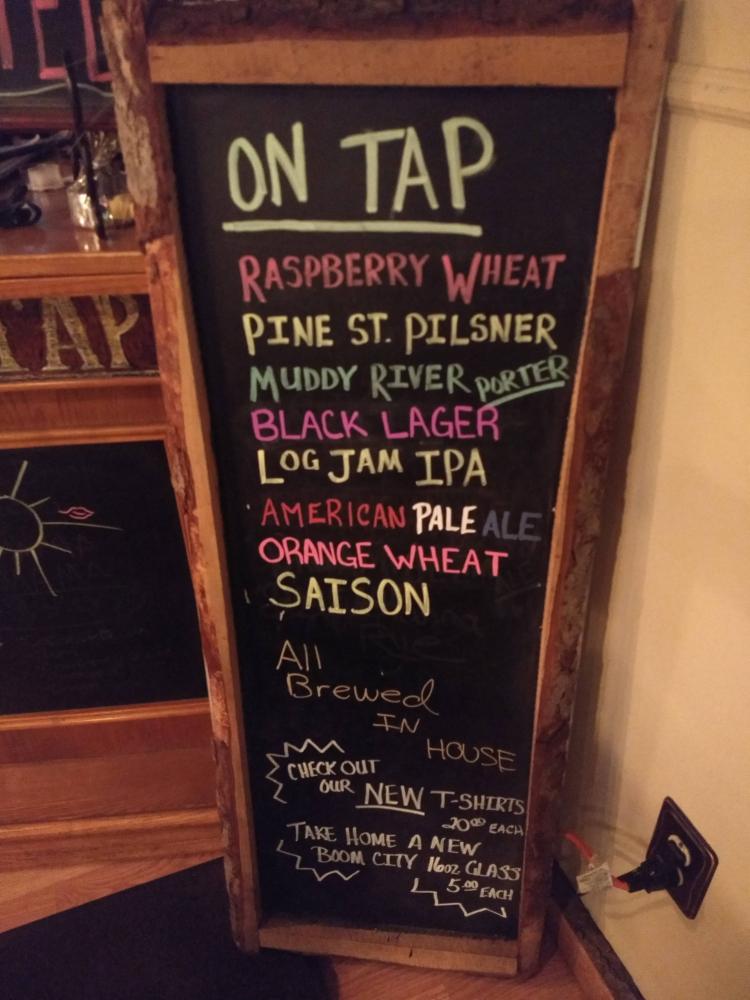 ON TAP
RASPBERRY WHEAT
PINE ST. PILSNER
MUDDY RIVER PORTER
BLACK LAGER
LOG JAM IPA
AMERICAN PALE ALE
ORANGE WHEAT
SAISON
All
Brewed
IN
HOUSE
CHECK OUT
OUR NEW T-SHIRTS
20.00 EACH
TAKE HOME A NEW
BOOM CITY 16oz GLASS
5.00 EACH
TAP